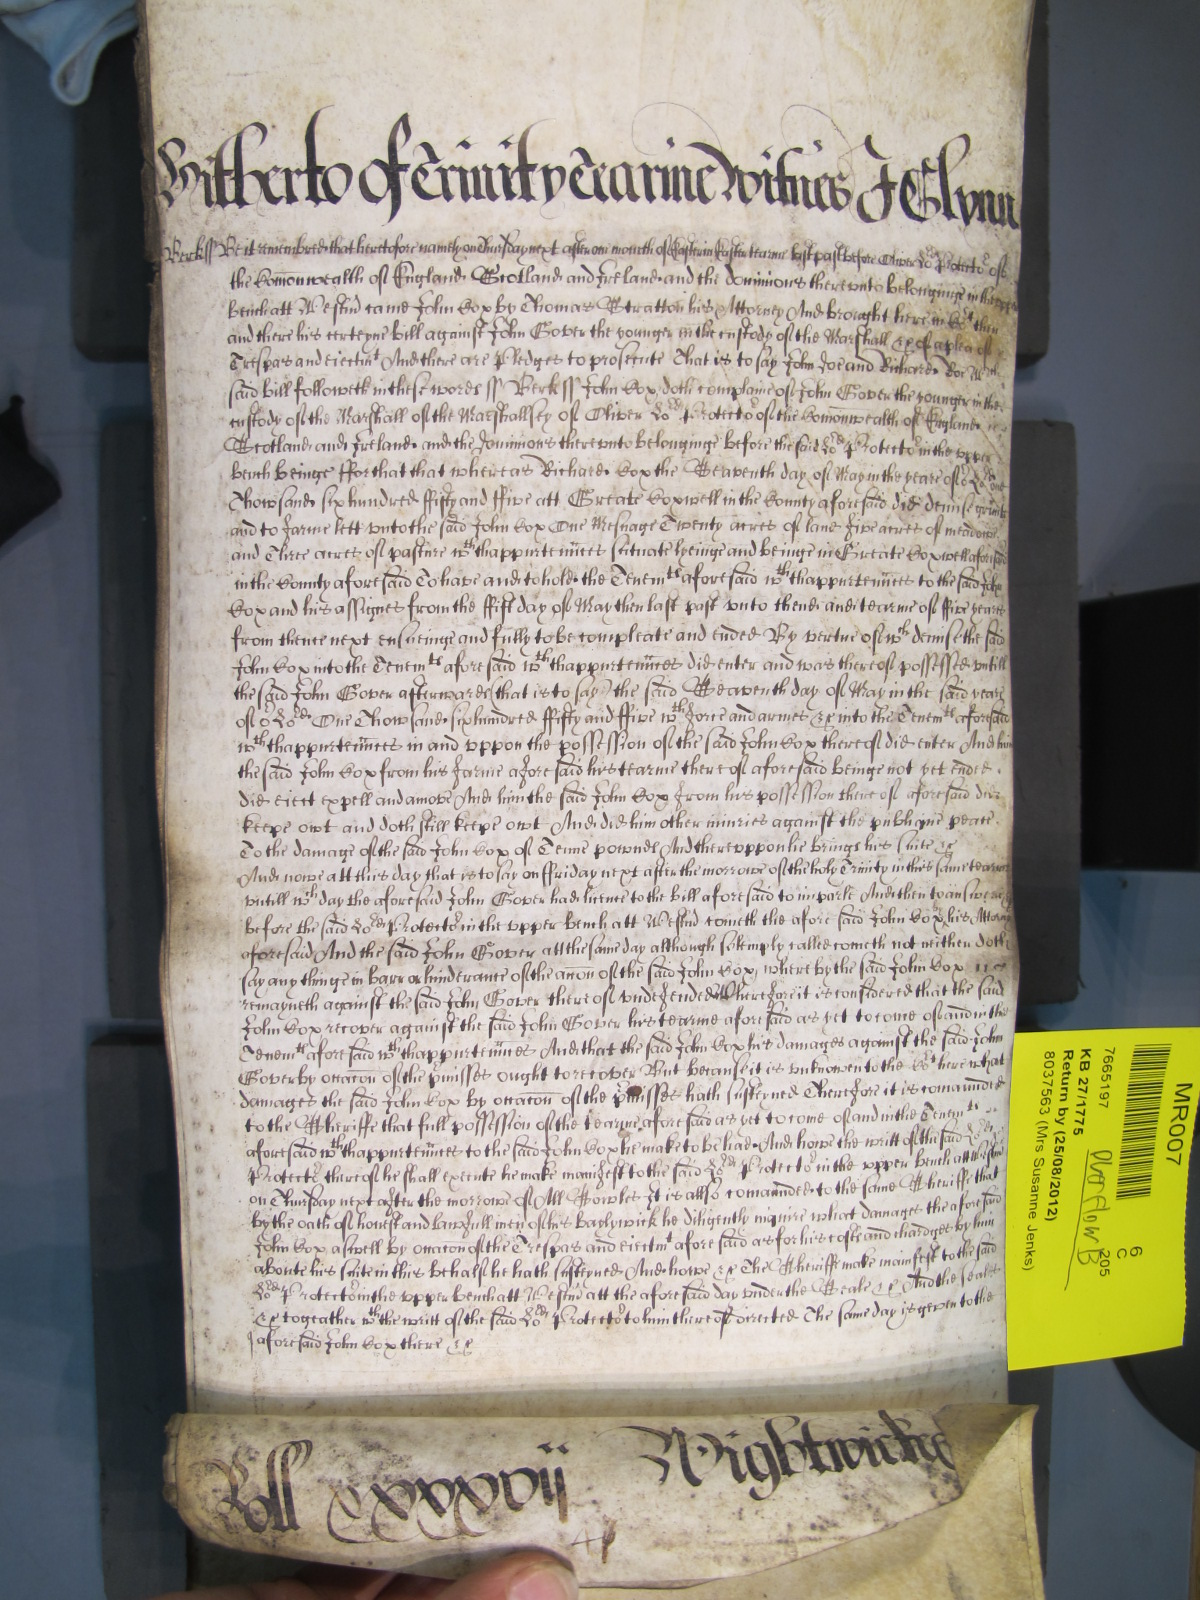 Hitherto of Trinity Tearme Witnes J Glynn
Berks ss Be it remembred that heretofore namely on Thursday next after one moneth of Easter in Easter tearme last past before Oliver Lord Protector of
the Comonwealth of England Scotland and Ireland and the dominions thereunto belonginge in the upper
bench att Westmr came John Cox by Thomas Stratton his Attorney And brought here into Court then
and there his certeyne bill against John Gover the younger in the custody of the Marshall &c of a plea of
Trespas and eiectmt And there are pledges to prosecute That is to say John Doe and Richard Roe Wch
said bill followeth in these words ss Berks ss John Cox doth complaine of John Gover the younger in the
custody of the Marshall of the Marshallsey of Oliver Lord Protector of the Comonwealth of England
Scotland and Ireland and the Dominions thereunto belonginge before the said Lord Protector in the upper
bench beinge ffor that that whereas Richard Cox the Seaventh day of May in the yeare of or Lord One
Thowsand six hundred ffifty and ffive att Greate Coxwell in the County aforesaid did demise graunt
and to farme lett unto the said John Cox One Mesuage Twenty acres of land five acres of meadowe
and Three acres of pasture wth thappurtennces scituate lyeinge and beinge in Greate Coxwell aforesaid
in the County aforesaid To have and to hold the Tenemts aforesaid wth thappurtennces to the said John
Cox and his assignes from the ffirst day of May then last past unto thend and tearme of ffive yeares
from thence next ensueinge and fully to be compleate and ended By vertue of wch demise the said
John Cox into the Tenemts aforesaid wth thappurtennces did enter and was thereof possessed untill
the said John Gover afterwards (that is to say) the said Seaventh day of May in the said yeare
of or Lord One Thowsand six hundred ffifty and ffive wth force and armes &c into the Tenemts aforesaid
wth thappurtennces in and uppon the possession of the said John Cox thereof did enter And him
the said John Cox from his farme aforesaid his tearme thereof aforesaid beinge not yet ended
did eiect expell and amove And him the said John Cox from his possession thereof aforesaid did
keepe owt and doth still keepe owt And did him other iniuries against the publique peace
To the damage of the said John Cox of Tenne pownds And thereuppon he brings his suite &c
And nowe att this day that is to say on ffriday next after the morrowe of the holy Trinity in this same tearme
untill wch day the aforesaid John Gover had licence to the bill aforesaid to imparle And then to answeare
before the said Lord Protector in the upper bench att Westmr cometh the aforesaid John Cox by his Attorney
aforesaid And the said John Gover att the same day although solemply called cometh not neither doth
say any thinge in barr or hinderance of the accon of the said John Cox whereby the said John Cox
remayneth against the said John Gover thereof undefended Therefore it is considered that the said
John Cox recover against the said John Gover his tearme aforesaid as yet to come of and in the
Tenemts aforesaid wth thappurtennces And that the said John Cox his damages against the said John
Gover by occacon of the pmisses ought to recover But because it is unknowen to the Court here what
damages the said John Cox by occacon of the pmisses hath susteyned Therefore it is comanded
to the Sheriffe that full possession of the tearme aforesaid as yet to come of and in the Tenemts
aforesaid wth thappurtennces to the said John Cox he make to be had And howe the writt of the said Lord
Protector thereof he shall execute he make manifest to the said Lord Protector in the upper bench att Westmr
on Thursday next after the morrowe of All Sowles It is allso comaunded to the same Sheriffe that
by the oath of honest and lawfull men of his baylywick he diligently inquire what damages the aforesaid
John Cox aswell by occacon of the Trespas and eiectmt aforesaid as for his costs and chardges by him
aboute his suite in this behalfe he hath susteyned And howe &c The Sheriffe make manifest to the said
Lord Protector in the upper bench att Westmr att the aforesaid day under the Seale &c And the seales
&c togeather wth the writt of the said Lord Protector to him thereof directed The same day is geven to the
aforesaid John Cox there &c
Roll cxxxvij Wightwicke
MR007
6
C
205
7665197
KB 27/1775
Return by (25/08/2012)
8037563 (Mrs Susanne Jenks)